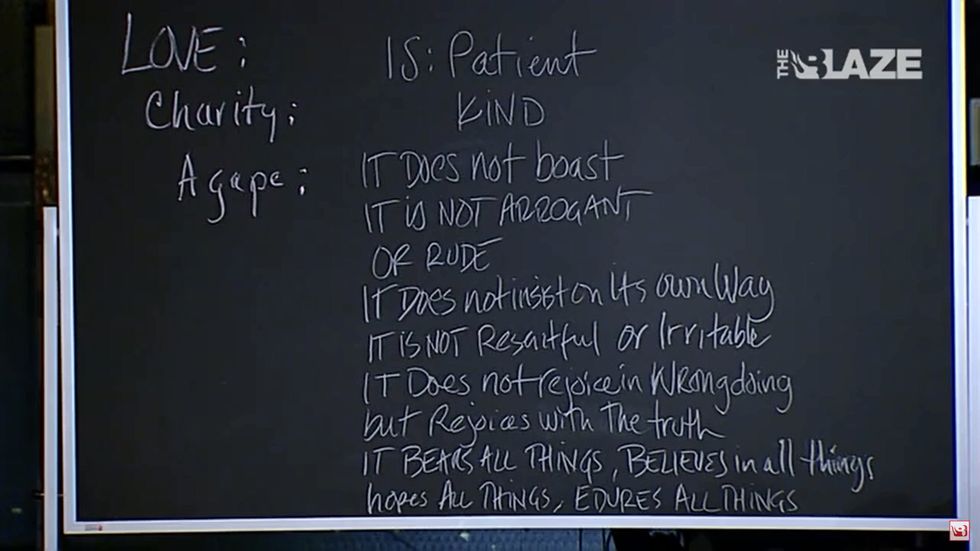 LOVE: IS: Patient
Charity: KIND
Agape: IT Does not boast
IT iS NOT ARROGANT
OR RUDE
IT Does not insist on Its own Way
IT iS NOT Resentful or Irritable
IT Does not rejoice in Wrongdoing
but Rejoices with The truth
IT BEARS ALL THINGS, BELIEVES in all things
hopes ALL THINGS, EDURES ALL THINGS
THE BLAZE